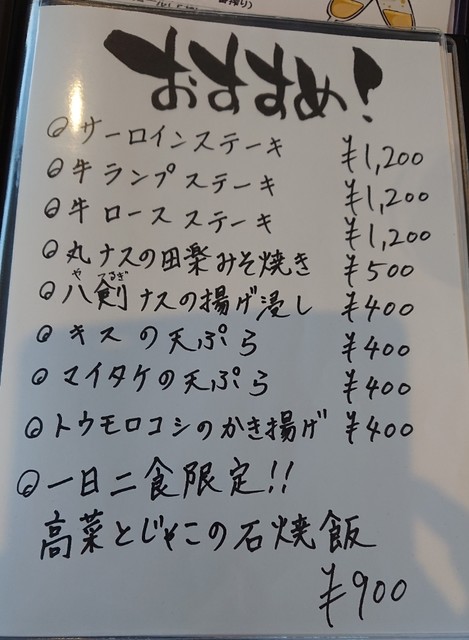 おすすめ!
サーロインステーキ ¥1,200
牛ランプステーキ ¥1,200
牛ロースステーキ ¥1,200
丸ナスの田楽みそ焼き ¥500
やつるぎ
八剣ナスの揚げ浸し ¥400
キスの天ぷら ¥400
マイタケの天ぷら ¥400
トウモロコシのかき揚げ ¥400
一日二食限定!!
高菜とじゃこの石焼飯
¥900